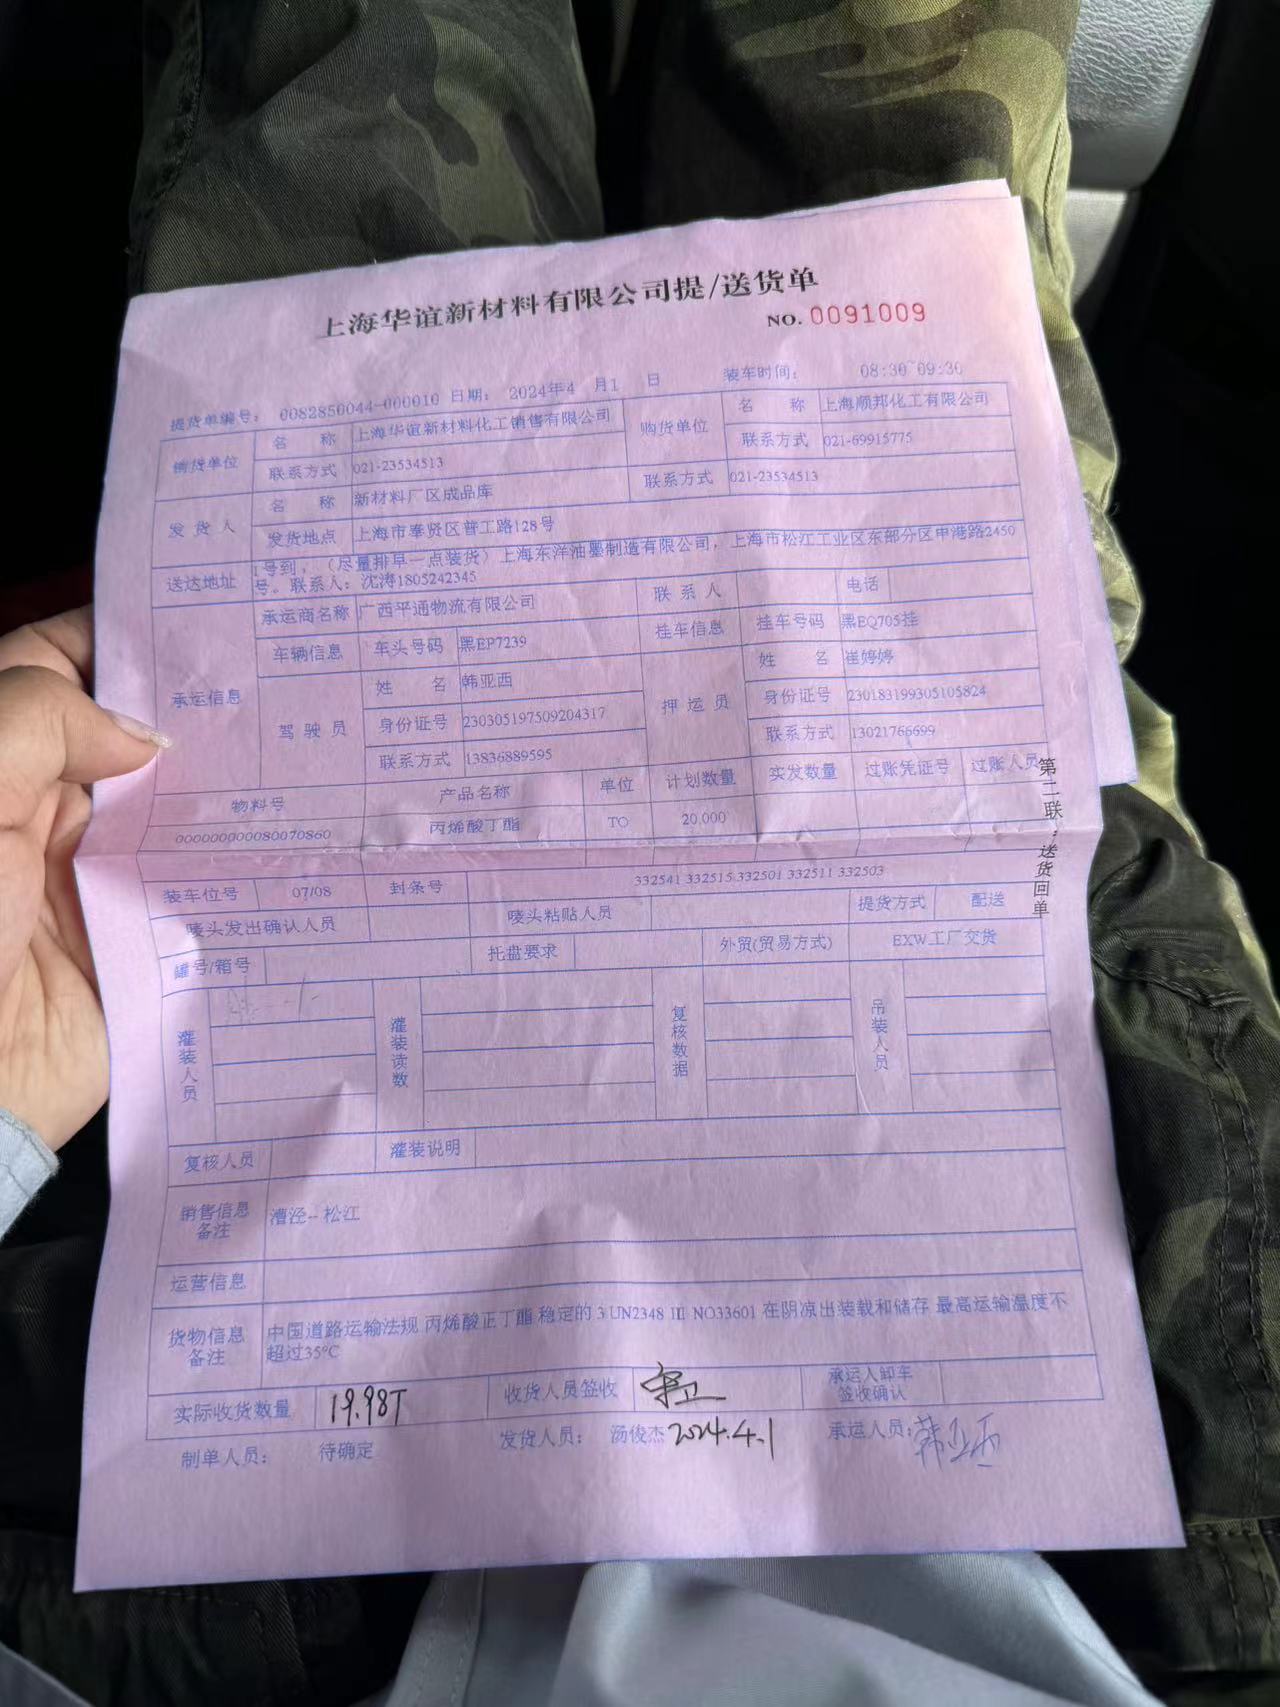 上海华谊新材料有限公司提/送货单
NO. 0091009
提货单编号： 0082850044-000010 日期： 2024年4 月1 日 装车时间： 08:30~09:30
销货单位 名 称 上海华谊新材料化工销售有限公司 购货单位 名 称 上海顺邦化工有限公司
联系方式 021-23534513 联系方式 021-69915775
发 货 人 名 称 新材料厂区成品库 联系方式 021-23534513
发货地点 上海市奉贤区普工路128号
送达地址 1号到，（尽量排早一点装货）上海东洋油墨制造有限公司，上海市松江工业区东部分区申港路2450
号。联系人：沈涛1805242345
承运信息 承运商名称 广西平通物流有限公司 联 系 人 电话
车辆信息 车头号码 黑EP7239 挂车信息 挂车号码 黑EQ705挂
驾 驶 员 姓 名 韩亚西 押 运 员 姓 名 崔婷婷
身份证号 230305197509204317 身份证号 230183199305105824
联系方式 13836889595 联系方式 13021766699
物料号 产品名称 单位 计划数量 实发数量 过账凭证号 过账人员
000000000080070860 丙烯酸丁酯 TO 20.000
第二联：送货回单
装车位号 07/08 封条号 332541 332515 332501 332511 332503
唛头发出确认人员 唛头粘贴人员 提货方式 配送
罐号/箱号 托盘要求 外贸(贸易方式) EXW工厂交货
灌装人员 灌装读数 复核数据 吊装人员
复核人员 灌装说明
销售信息备注 漕泾--松江
运营信息
货物信息备注 中国道路运输法规 丙烯酸正丁酯 稳定的 3 UN2348 III NO33601 在阴凉出装载和储存 最高运输温度不
超过35°C
实际收货数量 19.98T 收货人员签收 承运人卸车签收确认
制单人员： 待确定 发货人员： 汤俊杰 2024.4.1 承运人员: 韩亚西